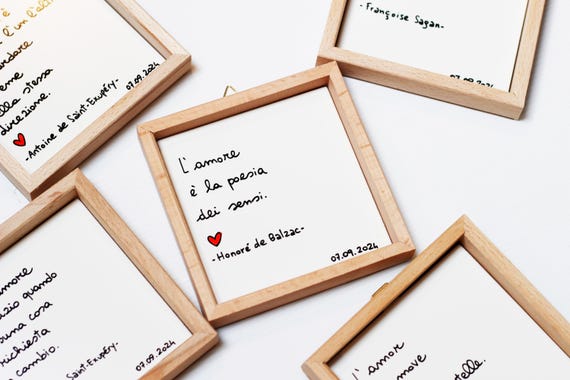 è
l'un l'alt
guardare
eme
lla stessa
direzione.
-Antoine de Saint-Exupéry-
07.09.2024
-Françoise Sagan-
07.09.2024
L'amore
è la poesia
dei sensi.
-Honoré de Balzac-
07.09.2024
amore
azio quando
suna cosa
richiesta
cambio.
Saint-Exupéry-
07.09.2024
L'amor
move
stelle.